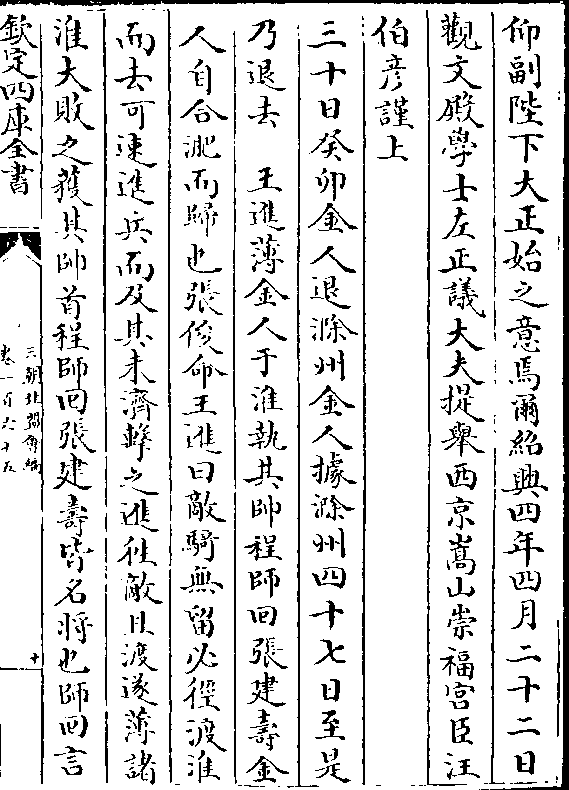 仰副陛下大正始之意焉爾紹興四年四月二十二日
觀文殿學士左正議大夫提舉西京嵩山崇福宮臣汪
伯彦謹上
三十日癸卯金人退滁州金人據滁州四十七日至是
乃退去　王進薄金人于淮執其帥程師回張建壽金
人自合淝而歸也張俊命王進曰敵騎無留必徑渡淮
而去可速進兵而及其未濟擊之進往敵且渡遂薄諸
淮大敗之獲其帥首程師回張建壽皆名將也師回言
欽定四庫全書
三朝北盟㑹編
卷一百六十五
十